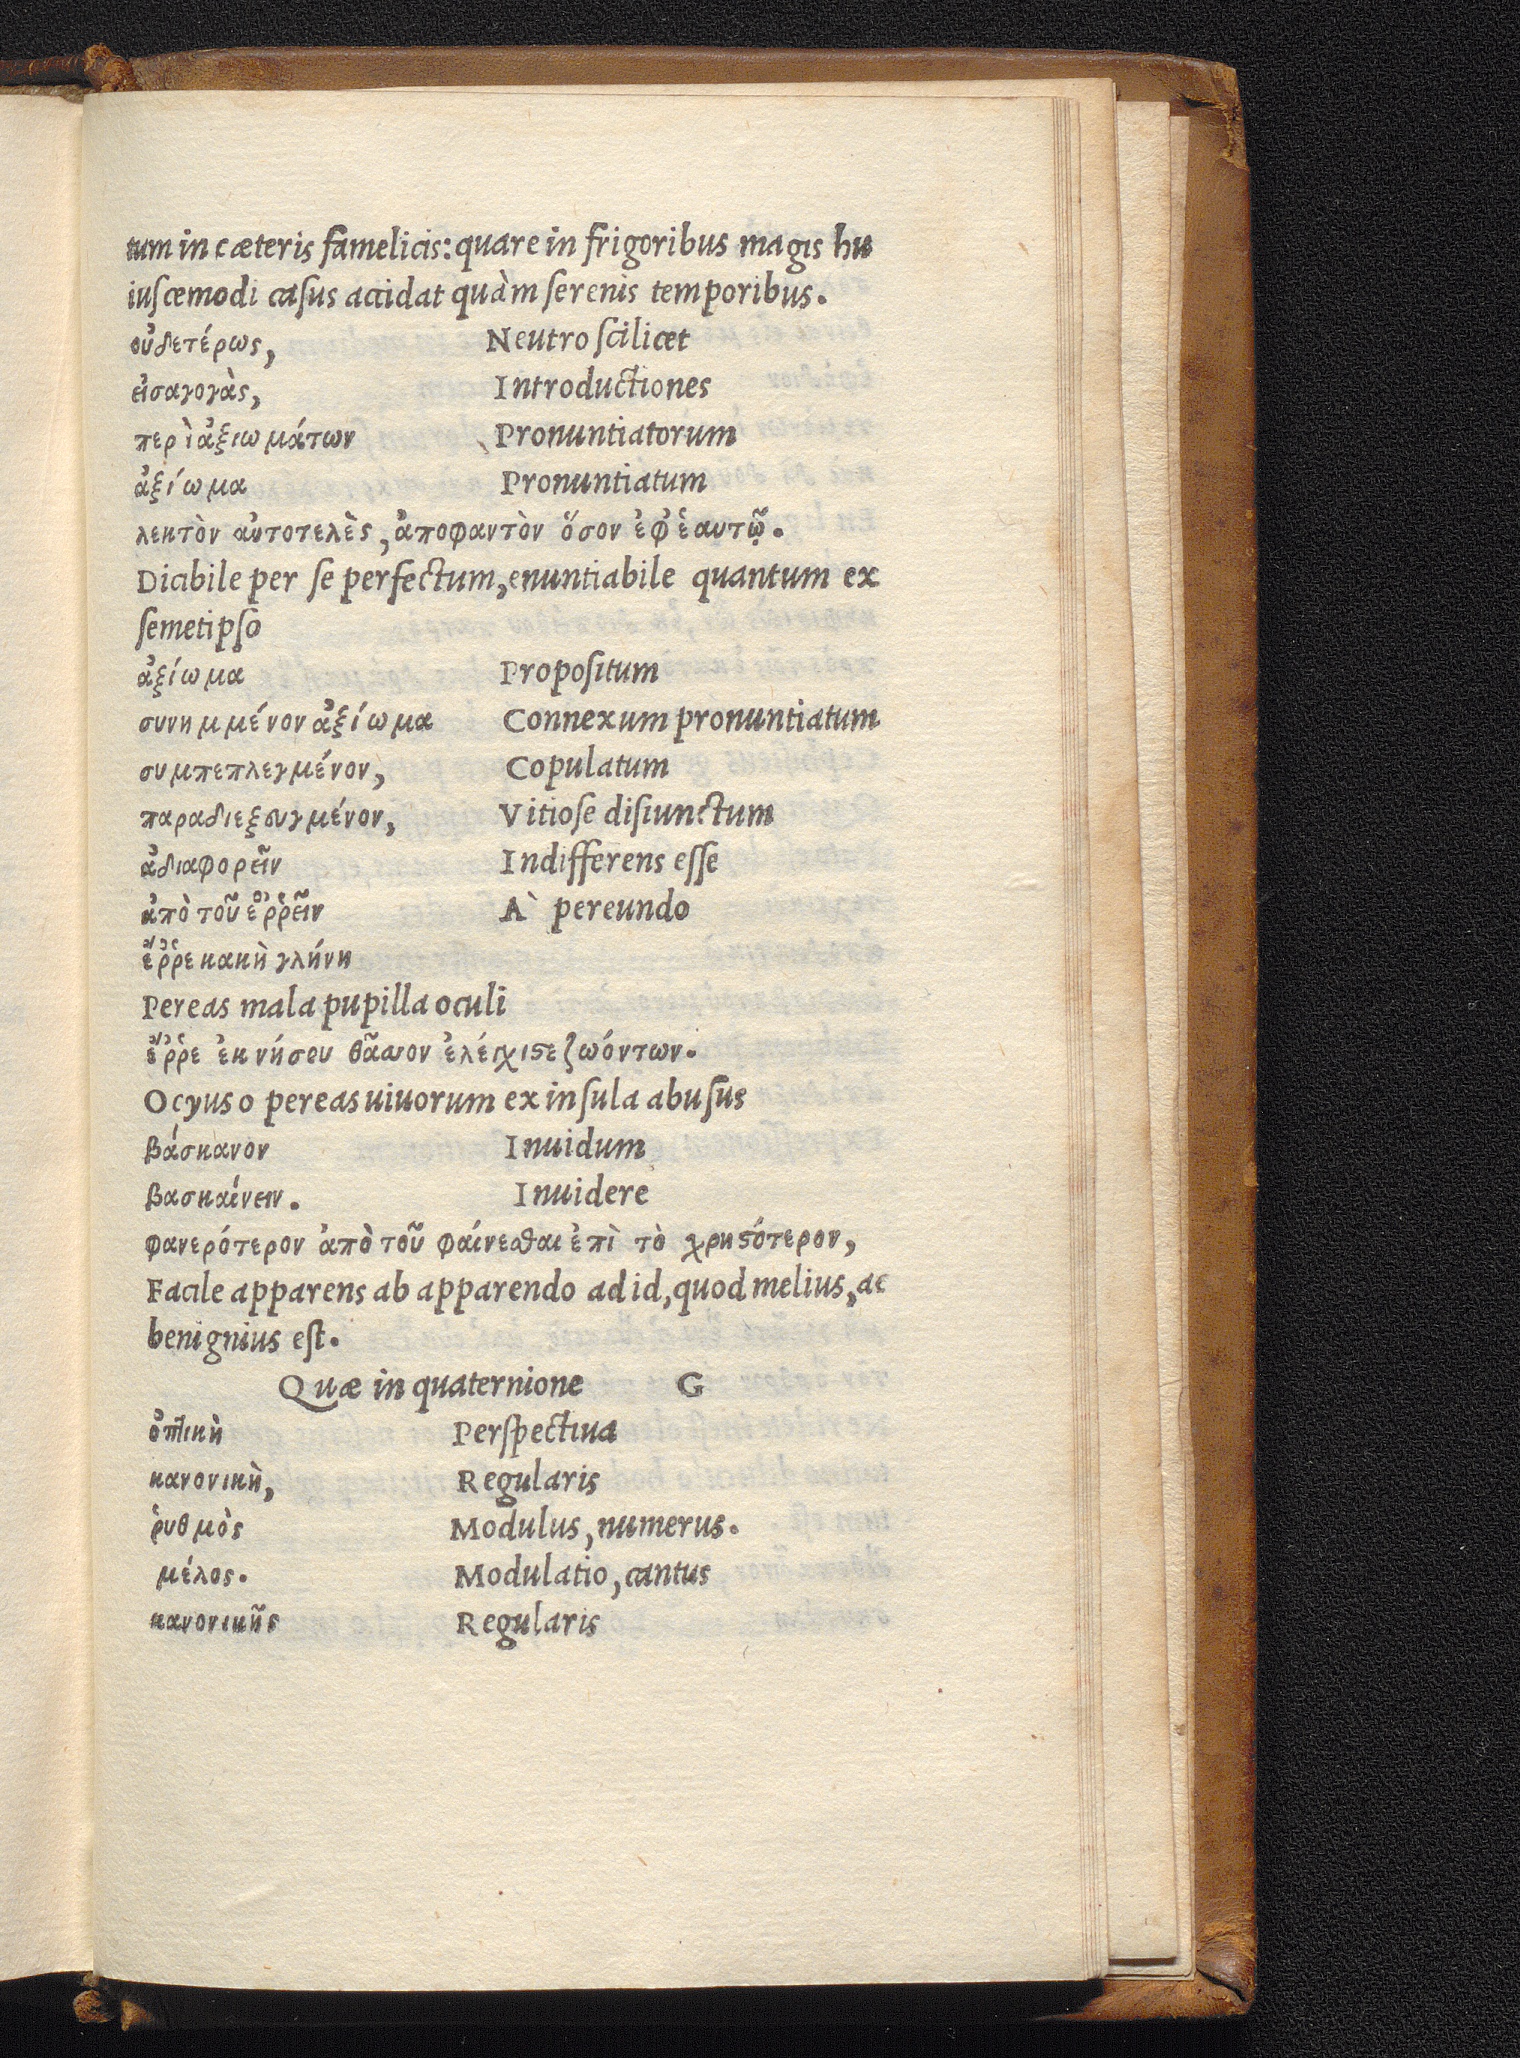 tum in cæteris famelicis: quare in frigoribus magis hu
iuscemodi casus accidat quàm serenis temporibus.
οὐδετέρως, Neutro scilicet
εἰσαγογὰς, Introductiones
περὶ ἀξιωμάτων Pronuntiatorum
ἀξίωμα Pronuntiatum
λεκτὸν αὐτοτελὲς, ἀποφαντὸν ὅσον ἐφ᾽ ἑαυτῷ.
Dicibile per se perfectum, enuntiabile quantum ex
semetipso
ἀξίωμα Propositum
συνημμένον ἀξίωμα Connexum pronuntiatum
συμπεπλεγμένον, Copulatum
παραδιεξευγμένον, Vitiose disiunctum
ἀδιαφορεῖν Indifferens esse
ἀπὸ τοῦ ἔῤῥεῖν A` pereundo
ἔῤῥε κακὴ γλήνη
Pereas mala pupilla oculi
ἔῤῥε ἐκ νήσου θᾶσσον ἐλέγχιστε ζωόντων.
Ocyus o pereas uiuorum ex insula abusus
βάσκανον Inuidum
βασκαίνειν. Inuidere
φανερότερον ἀπὸ τοῦ φαίνεσθαι ἐπὶ τὸ χρηστότερον,
Facile apparens ab apparendo ad id, quod melius, ac
benignius est.
Quæ in quaternione G
ὀπτικὴ Perspectiua
κανονικὴ, Regularis
ῥυθμὸς Modulus, numerus.
μέλος. Modulatio, cantus
κανονικῆς Regularis